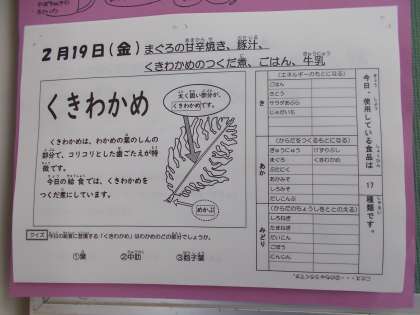 2月19日(金) まぐろの甘辛焼き、豚汁、
くきわかめのつくだ煮、ごはん、牛乳
くきわかめ
太く固い部分が、
くきわかめです。
めかぶ
くきわかめは、わかめの葉のしんの
部分で、コリコリとした歯ごたえが特
徴です。
今日の給食では、くきわかめを
つくだ煮にしています。
クイズ 今日の給食に登場する「くきわかめ」はわかめのどの部分でしょうか。
①葉 ②中肋 ③胞子葉
今日、使用している食品は
17種類です。
き
(エネルギーのもとになる)
ごはん
さとう
サラダあぶら
じゃがいも
あか
(からだをつくるもとになる)
ぎゅうにゅう けずりぶし
まぐろ くきわかめ
ぶたにく
あかみそ
しろみそ
だしこんぶ
みどり
(からだのちょうしをととのえる)
しろねぎ
たまねぎ
だいこん
ごぼう
にんじん